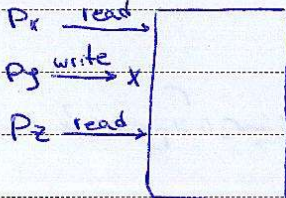 Px read
Py write x
Pz read